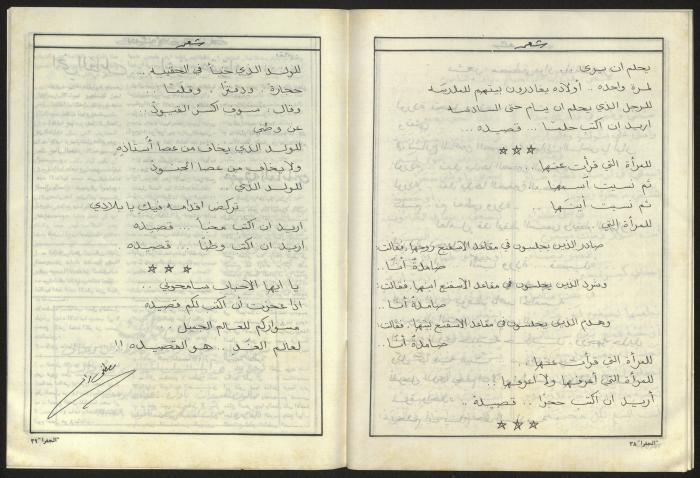 شعر
يحلم ان يرى
لمرة واحده .. أولاده يغادرون بيتهم للمدرسة
للرجل الذي يحلم ان ينام حتى السادسة
اريد ان اكتب حلماً .. قصيده ...
للمرأة التي قرأت عنها ..
ثم نسيت اسمها ..
ثم نسيت أينها ..
للمرأة التي ..
صادر الذين يجلسون في مقاعد الاسفنج زوجها، فقالت:
صامدةٌ أنا ..
وشرد الذين يجلسون في مقاعد الاسفنج ابنها، فقالت:
صامدةٌ أنا ..
وهدم الذين يجلسون في مقاعد الاسفنج بيتها، فقالت:
صامدةٌ أنا ..
للمرأة التي قرأت عنها ..
للمرأة التي أعرفها ولا أعرفها ..
أريد ان اكتب حجراً .. قصيدة ..
"الجفرا" ٣٨
شعر
للولد الذي خبأ في الحقيبه ..
حجارة .. ودفتراً .. وقلماً ..
وقال : سوف أكسر القيود ..
عن وطني
للولد الذي يخاف من عصا أستاذهِ
ولا يخاف من عصا الجنود
للولد الذي ..
تركض اقدامه فيك يا بلادي
اريد ان اكتب معنىً ... قصيده
اريد ان اكتب وطناً ... قصيده
يا ايها الأحباب سامحوني ..
اذا عجزت أن أكتب لكم قصيده
مشواركم للعالم الجميل ..
لعالم الغدِ .. هو القصيده !!
"الجفرا" ٣٩